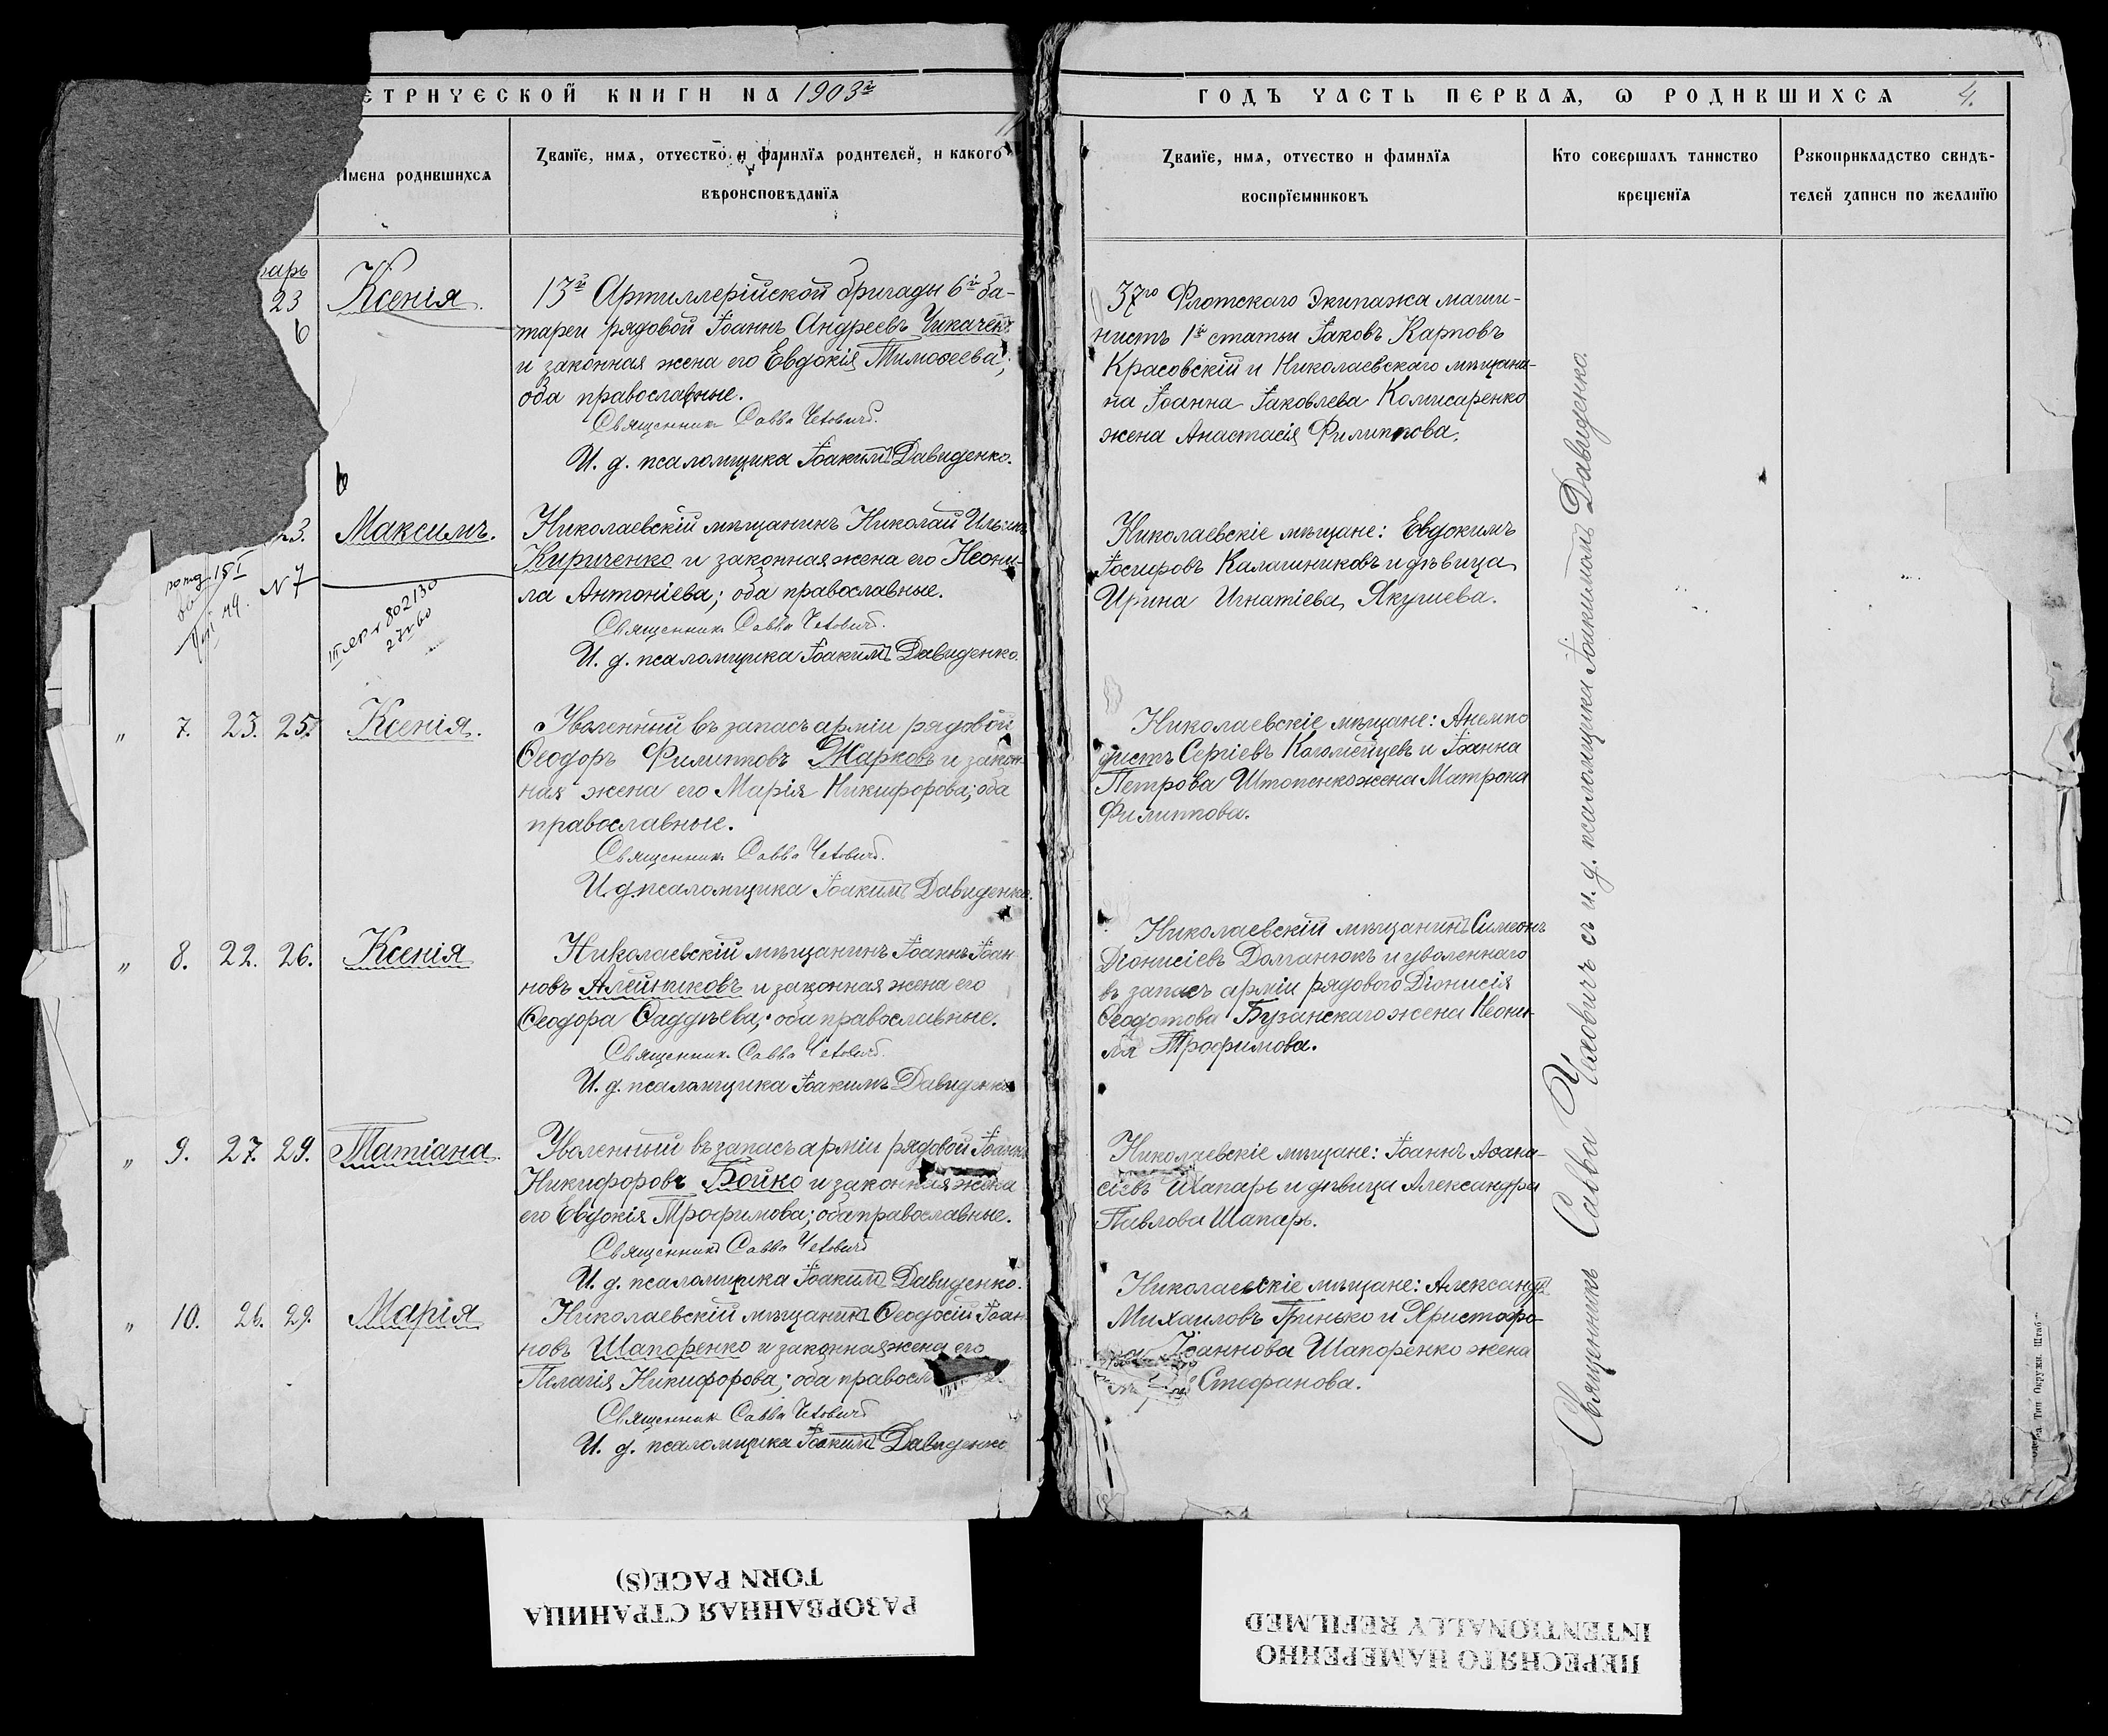 ЕТРИЧЕСКОЙ КНИГИ НА 1903й
Имена родившихся
Званїе, имя, отчество и фамилїя родителей, и какого
вѣроисповѣданїя
арь
23
6
Ксенія.
13й Артиллерійской бригады 6й ба-
тареи рядовой Іоаннъ Андреевъ
и законная жена его Евдокія Тимоѳеева;
оба православные.
Священник Савва Чехович.
И. д. псаломщика Іоакимъ Давиденко.
23.
Максимъ.
Николаевскій мѣщанинъ Николай Ильинъ
Кириченко и законная жена его Неони-
ла Антоніева; оба православные.
Священник Савва
И. д. псаломщика Іоакимъ Давиденко.
151
N 7
802130
" 7. 23. 25. Ксенія.
Уволенный въ запасъ арміи рядовой
Ѳеодоръ Филипповъ Жарковъ и закон-
ная жена его Марія Никифорова; оба
православные.
Священник Савва
И. д. псаломщика Іоакимъ Давиденко.
" 8. 22. 26. Ксенія
Николаевскій мѣщанинъ Іоаннъ Іоан-
новъ Алейниковъ и законная жена его
Ѳеодора Ѳаддѣева; оба православные.
Священник Савва
И. д. псаломщика Іоакимъ Давиденко
" 9. 27. 29. Татіана.
Уволенный въ запасъ арміи рядовой Іоаннъ
Никифоровъ Бойко и законная жена
его Евдокія Трофимова; оба православные.
Священник Савва
И. д. псаломщика Іоакимъ Давиденко.
" 10. 26. 29. Марія
Николаевскій мѣщанинъ Ѳеодосій Іоан-
новъ Шапоренко и законная жена его
Пелагія Никифорова; оба правосл
Священник Савва
И. д. псаломщика Іоакимъ Давиденко
ГОДЪ ЧАСТЬ ПЕРВАЯ, Ѡ РОДИВШИХСЯ 4.
Званїе, имя, отчество и фамилїя
воспрїемниковъ
Кто совершалъ таинство
крещенїя
Рукоприкладство свидѣ-
телей записи по желанїю
37го Флотскаго Экипажа маши-
нистъ 1й статьи Іаковъ Карповъ
Красовскій и Николаевскаго мѣщани-
на Іоанна Іаковлева Комисаренко
жена Анастасія Филиппова.
Николаевскіе мѣщане: Евдокимъ
Іосифовъ Калашниковъ и дѣвица
Ирина Игнатіева Якушева.
Николаевскіе мѣщане: Анемпо
дистъ Сергіевъ и Іоанна
Петрова Штопенко жена Матрона
Филиппова.
Николаевскій мѣщанинъ Симеонъ
Діонисіевъ Долганюкъ и уволеннаго
въ запасъ арміи рядового Діонисія
Ѳеодотова Бузанскаго жена Неони-
ла Трофимова.
Николаевскіе мѣщане: Іоаннъ Аѳана-
сіевъ Шапарь и дѣвица Александра
Павлова Шапарь.
Николаевскіе мѣщане: Александръ
Михаиловъ Гринько и Христофо-
ра Іоаннова Шапоренко жена
Стефанова.
Священникъ Савва Чехович съ и. д. псаломщика Іоакимомъ Давыденко.
Тип. Окружн. Штаба
РАЗОРВАННАЯ СТРАНИЦА
TORN PAGE(S)
ПЕРЕСНЯТО НАМЕРЕННО
INTENTIONALLY REFILMED